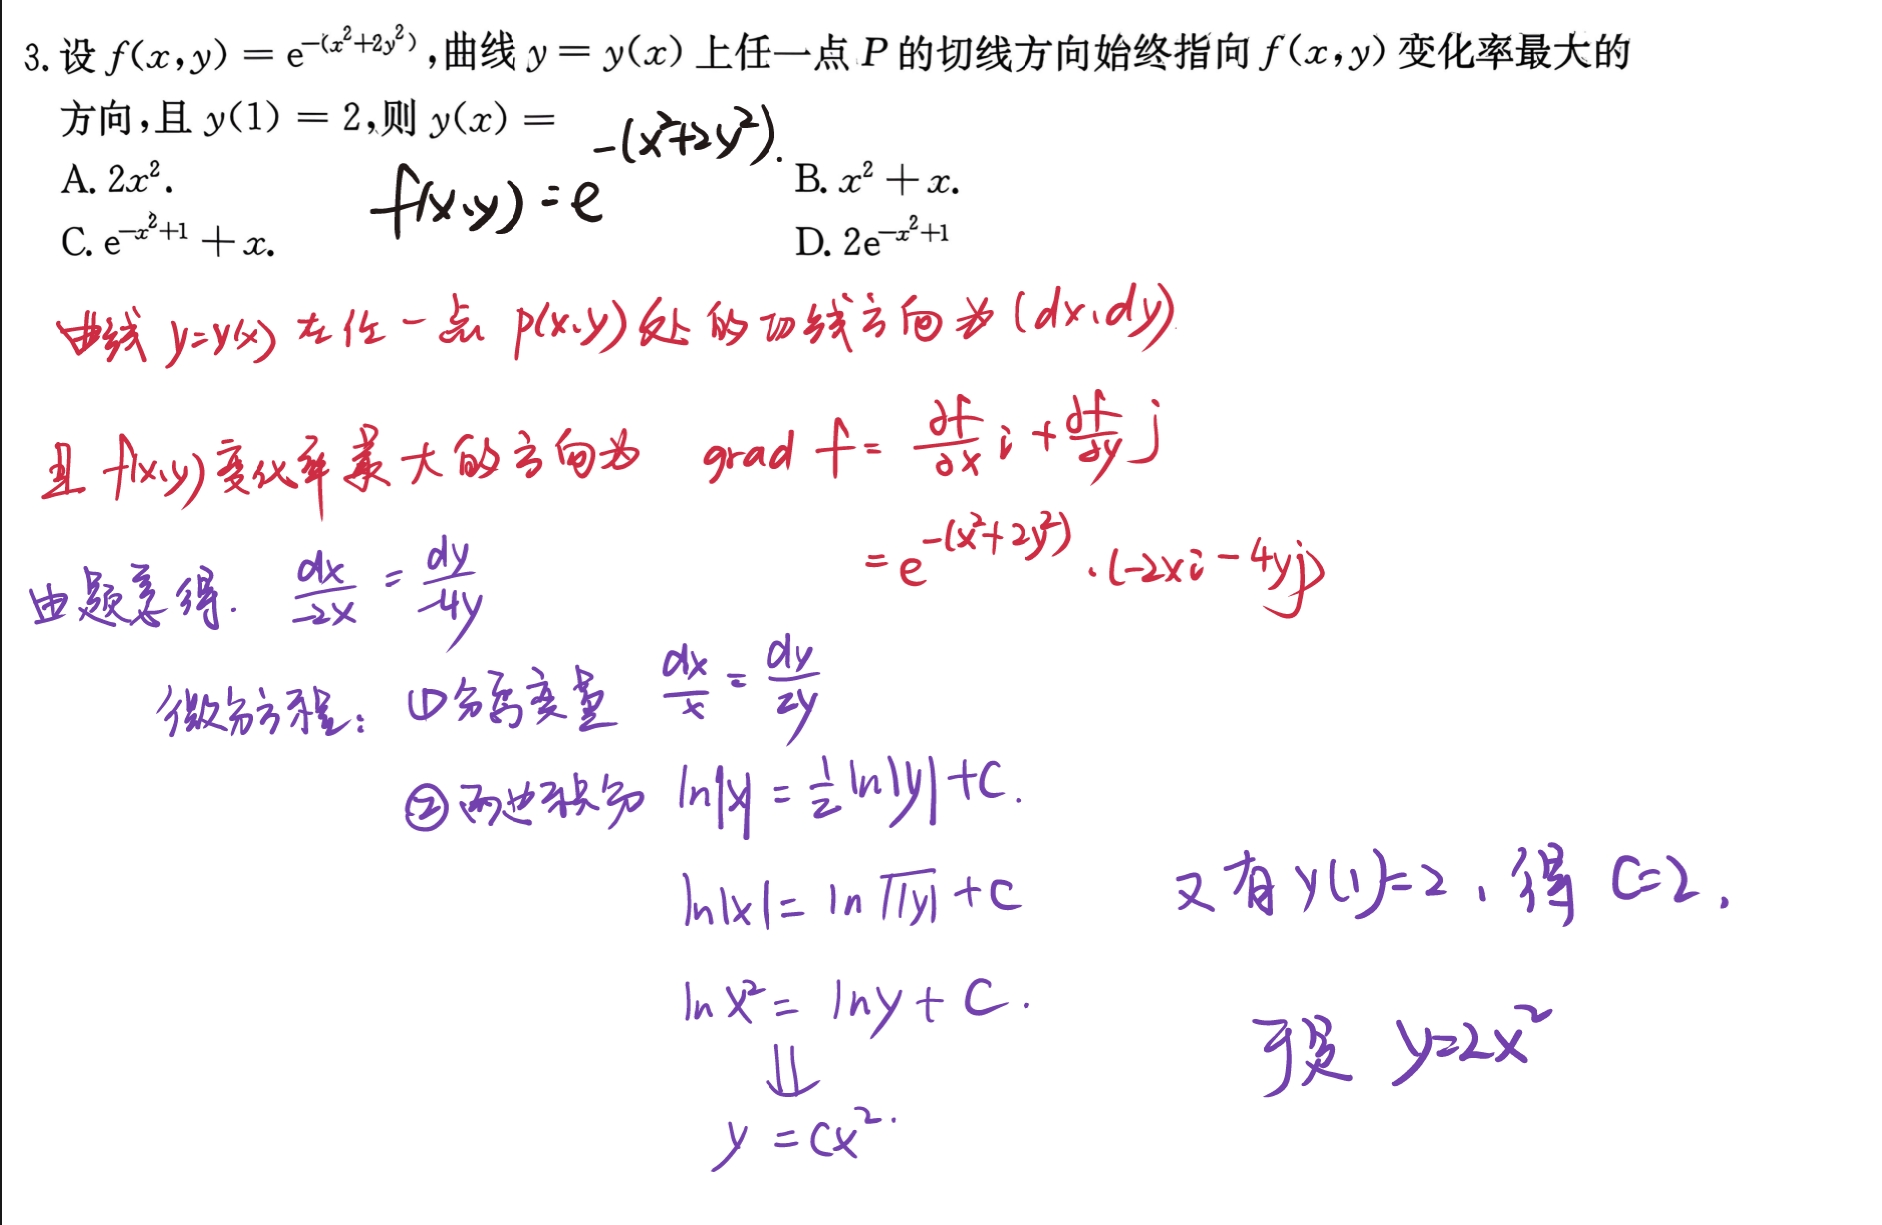 3. 设 f(x,y) = e^{-(x²+2y²)},曲线 y = y(x) 上任一点 P 的切线方向始终指向 f(x,y) 变化率最大的
方向,且 y(1) = 2,则 y(x) =
A. 2x².
B. x² + x.
f(x,y) = e^{-(x²+2y²)}.
C. e^{-x²+1} + x.
D. 2e^{-x²+1}
曲线 y=y(x) 在任一点 p(x,y) 处的切线方向为 (dx,dy)
且 f(x,y) 变化率最大的方向为 grad f = ∂f/∂x i + ∂f/∂y j
= e^{-(x²+2y²)} · (-2xi - 4yj)
由题意得. dx/-2x = dy/-4y
微分方程: ①分离变量 dx/x = dy/2y
②两边积分 ln|x| = 1/2 ln|y| + C.
ln|x| = ln √|y| + C
又有 y(1)=2, 得 C=2,
ln x² = ln y + C.
于是 y=2x²
⇓
y = Cx².